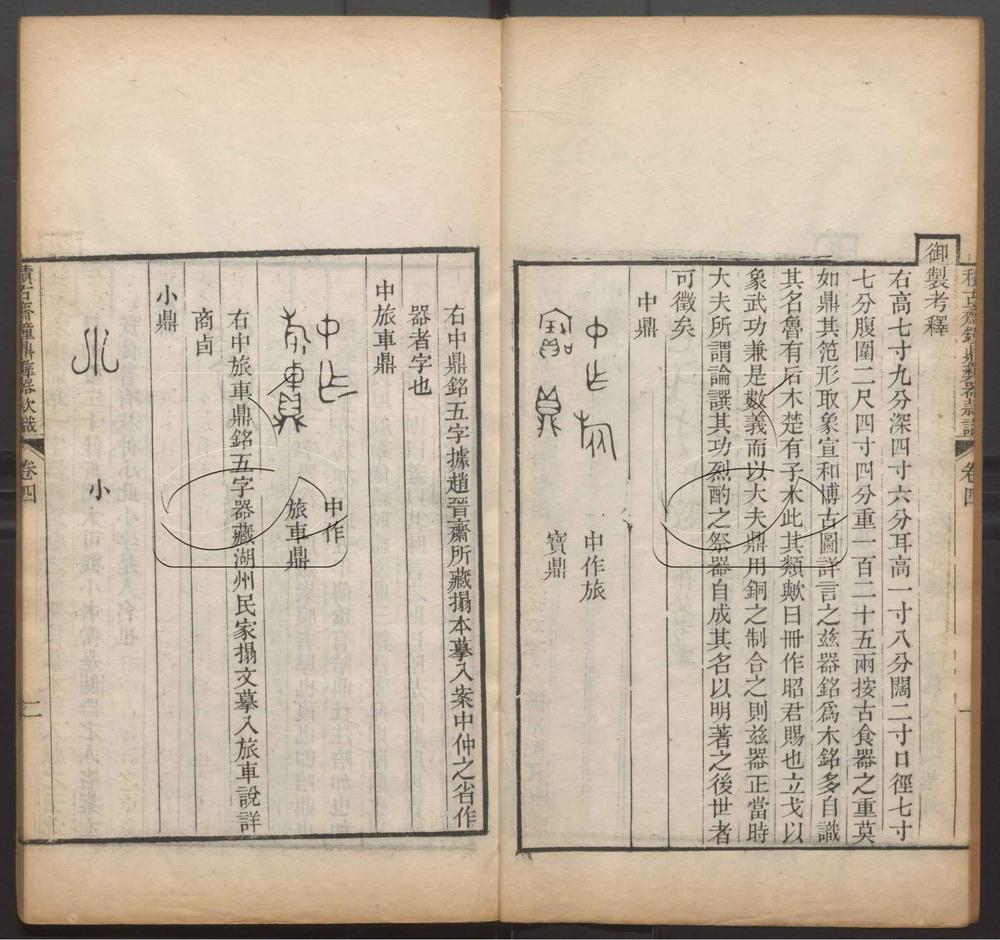 積古齋鐘鼎彝器款識 卷四 一
御製考釋
右高七寸九分深四寸六分耳高一寸八分闊二寸口徑七寸
七分腹圍二尺四寸四分重一百二十五兩按古食器之重莫
如鼎其笵形取象宣和博古圖詳言之兹器銘爲木銘多自識
其名魯有后木楚有子木此其類歟曰冊作昭君賜也立戈以
象武功兼是數義而以大夫鼎用銅之制合之則兹器正當時
大夫所謂論譔其功烈酌之祭器自成其名以明著之後世者
可徵矣
中鼎
中作旅
寶鼎
右中鼎銘五字據趙晉齋所藏搨本摹入案中仲之省作
器者字也
中旅車鼎
中作
旅車鼎
右中旅車鼎銘五字器藏湖州民家搨文摹入旅車說詳
商卣
小鼎
小
積古齋鐘鼎彝器款識 卷四 二